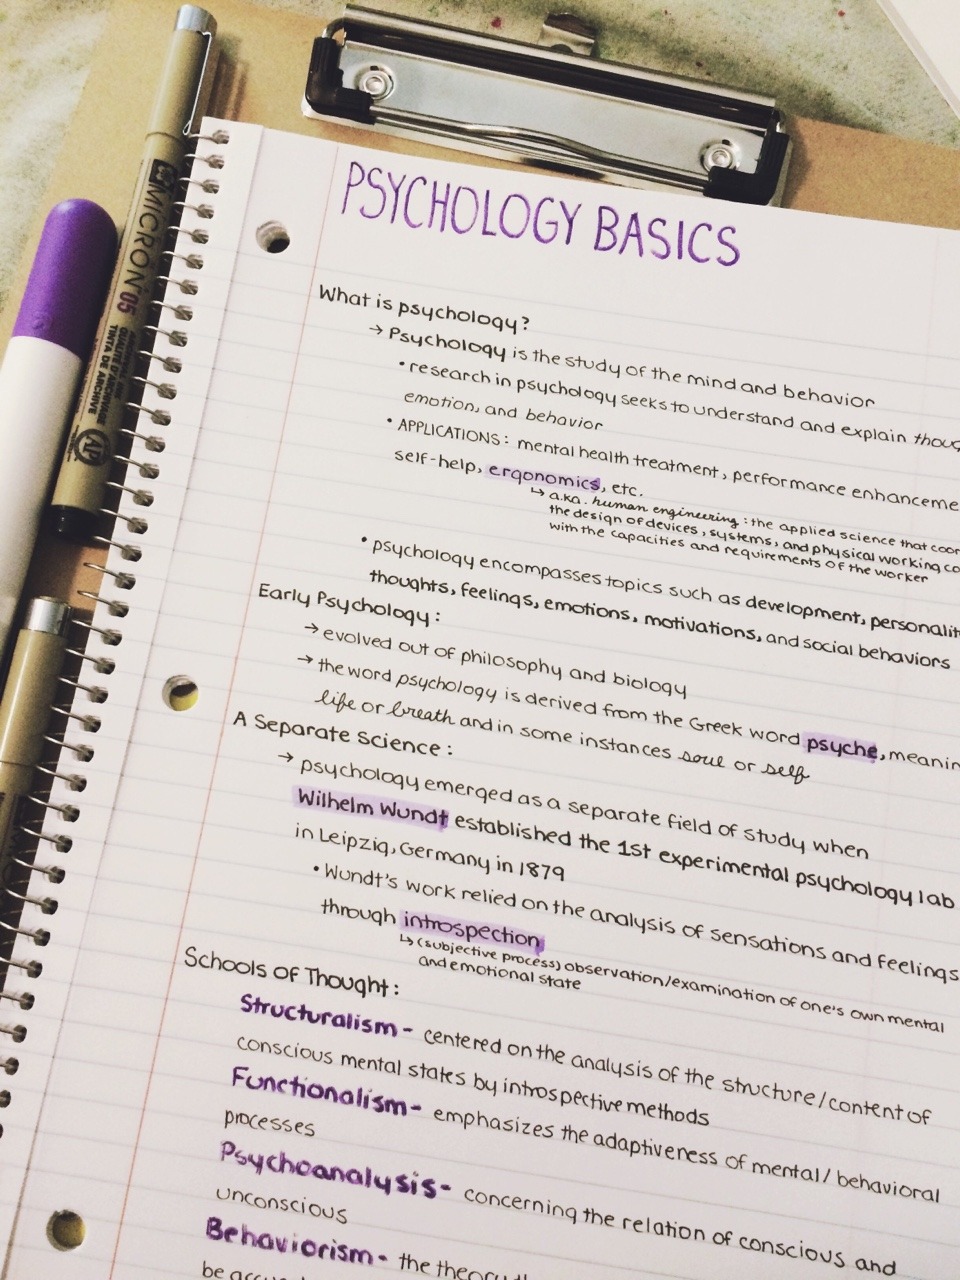 PSYCHOLOGY BASICS
What is psychology?
→ Psychology is the study of the mind and behavior
• research in psychology seeks to understand and explain thoug
emotion, and behavior
• APPLICATIONS: mental health treatment, performance enhanceme
self-help, ergonomics, etc.
↳ a.k.a. human engineering: the applied science that coor
the design of devices, systems, and physical working co
with the capacities and requirements of the worker
• psychology encompasses topics such as development, personalit
thoughts, feelings, emotions, motivations, and social behaviors
Early Psychology:
→ evolved out of philosophy and biology
→ the word psychology is derived from the Greek word psyche, meanin
life or breath and in some instances soul or self
A Separate Science:
→ psychology emerged as a separate field of study when
Wilhelm Wundt established the 1st experimental psychology lab
in Leipzig, Germany in 1879
• Wundt's work relied on the analysis of sensations and feelings
through introspection
↳ (subjective process) observation/examination of one's own mental
and emotional state
Schools of Thought:
Structuralism - centered on the analysis of the structure/content of
conscious mental states by introspective methods
Functionalism - emphasizes the adaptiveness of mental/behavioral
processes
Psychoanalysis - concerning the relation of conscious and
unconscious
Behaviorism - the theory
MICRON 05
QUALITÉ D'ARCHIVAGE
TINTA DE ARCHIVE
AP